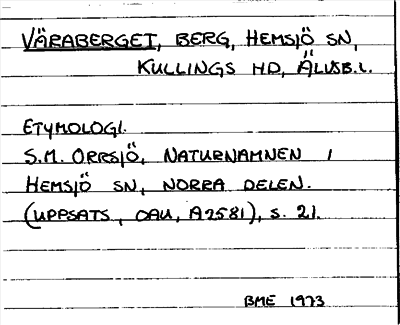 VÄRABERGET, BERG, HEMSJÖ SN,
KULLINGS HD, ÄLVSB.L.
ETYMOLOGI.
S.M. ORRSJÖ, NATURNAMNEN I
HEMSJÖ SN, NORRA DELEN.
(UPPSATS, OAU, A2581), S. 21.
BME 1973